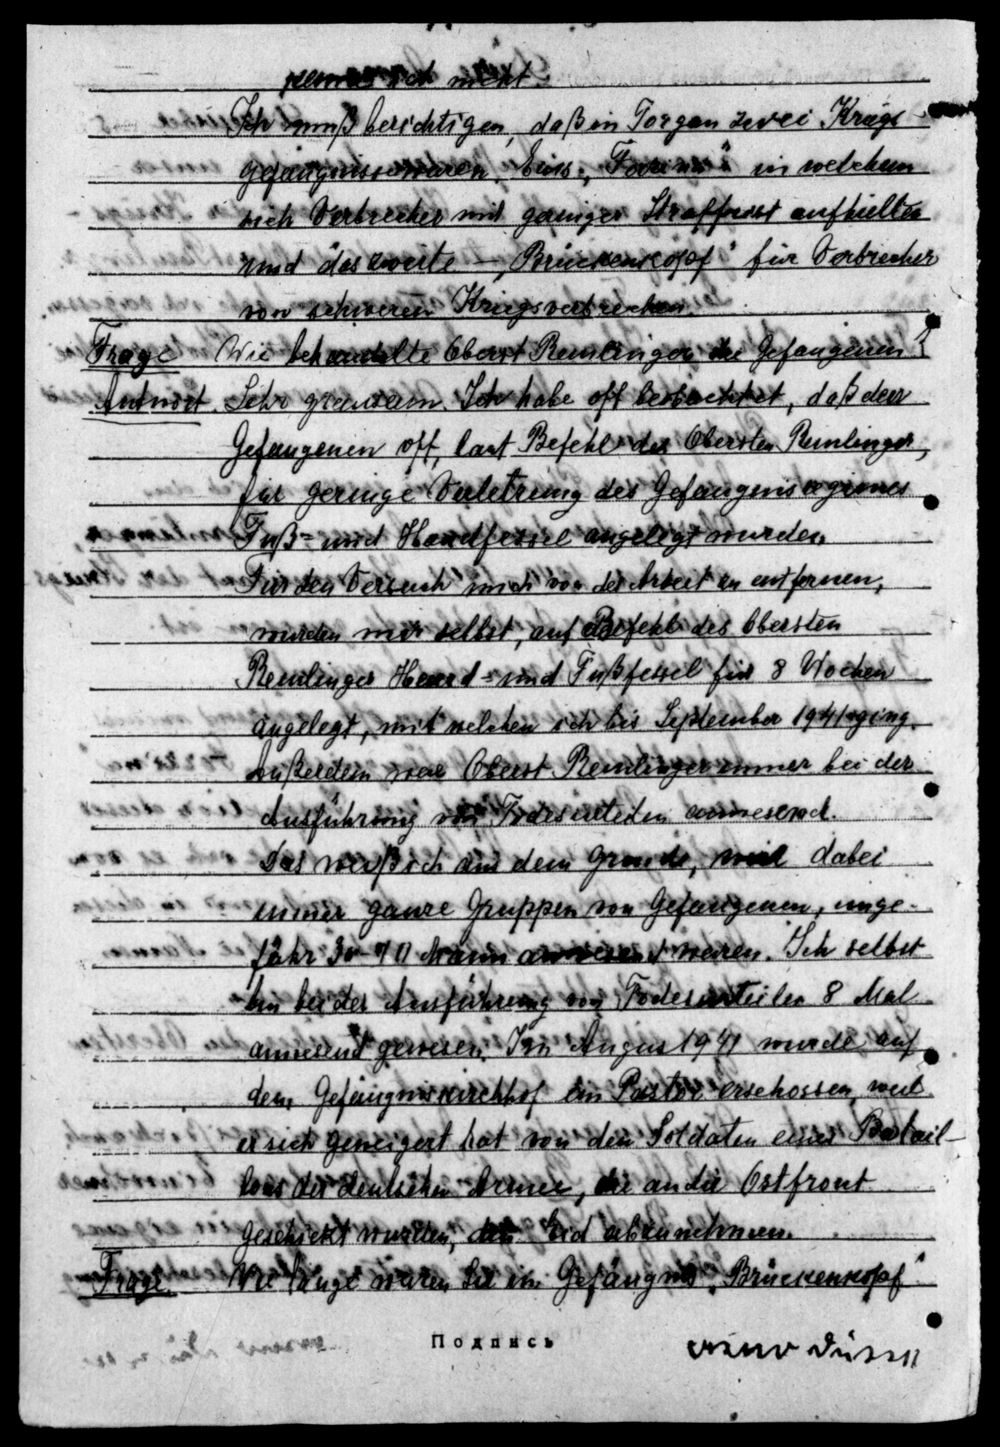 ich nicht.
Ich muß berichtigen, daß in Torgau zwei Kriegs
gefängnisse waren. Eins „ " in welchem
sich Verbrecher mit geringer Straffrist aufhielten
und das zweite — „Brückenkopf" für Verbrecher
von schweren Kriegsverbrechen.
Frage Wie behandelte Oberst Remlinger die Gefangenen?
Antwort. Sehr grausam. Ich habe oft beobachtet, daß den
Gefangenen oft, laut Befehl des Obersten Remlinger,
für geringe Verletzung des
Fuß= und Handfessel angelegt wurden.
Für den Versuch mich von der Arbeit zu entfernen,
wurden mir selbst, auf Befehl des Obersten
Remlinger Hand= und Fußfessel für 8 Wochen
angelegt, mit welchen ich bis September 1941 ging.
Außerdem war Oberst Remlinger immer bei der
Ausführung von Todesurteilen anwesend.
Das weiß ich aus dem Grunde, weil dabei
immer ganze Gruppen von Gefangenen, unge-
fähr 30 Mann anwesend waren. Ich selbst
bin bei der Ausführung von Todesurteilen 8 Mal
anwesend gewesen. Im August 1941 wurde auf
dem Gefängniskirchhof ein Pastor erschossen, weil
er sich geweigert hat von den Soldaten eines Batail-
lons der deutschen Armee, die an die Ostfront
geschickt wurden, den Eid abzunehmen.
Frage. Wie lange waren Sie im Gefängnis „Brückenkopf"
Подпись